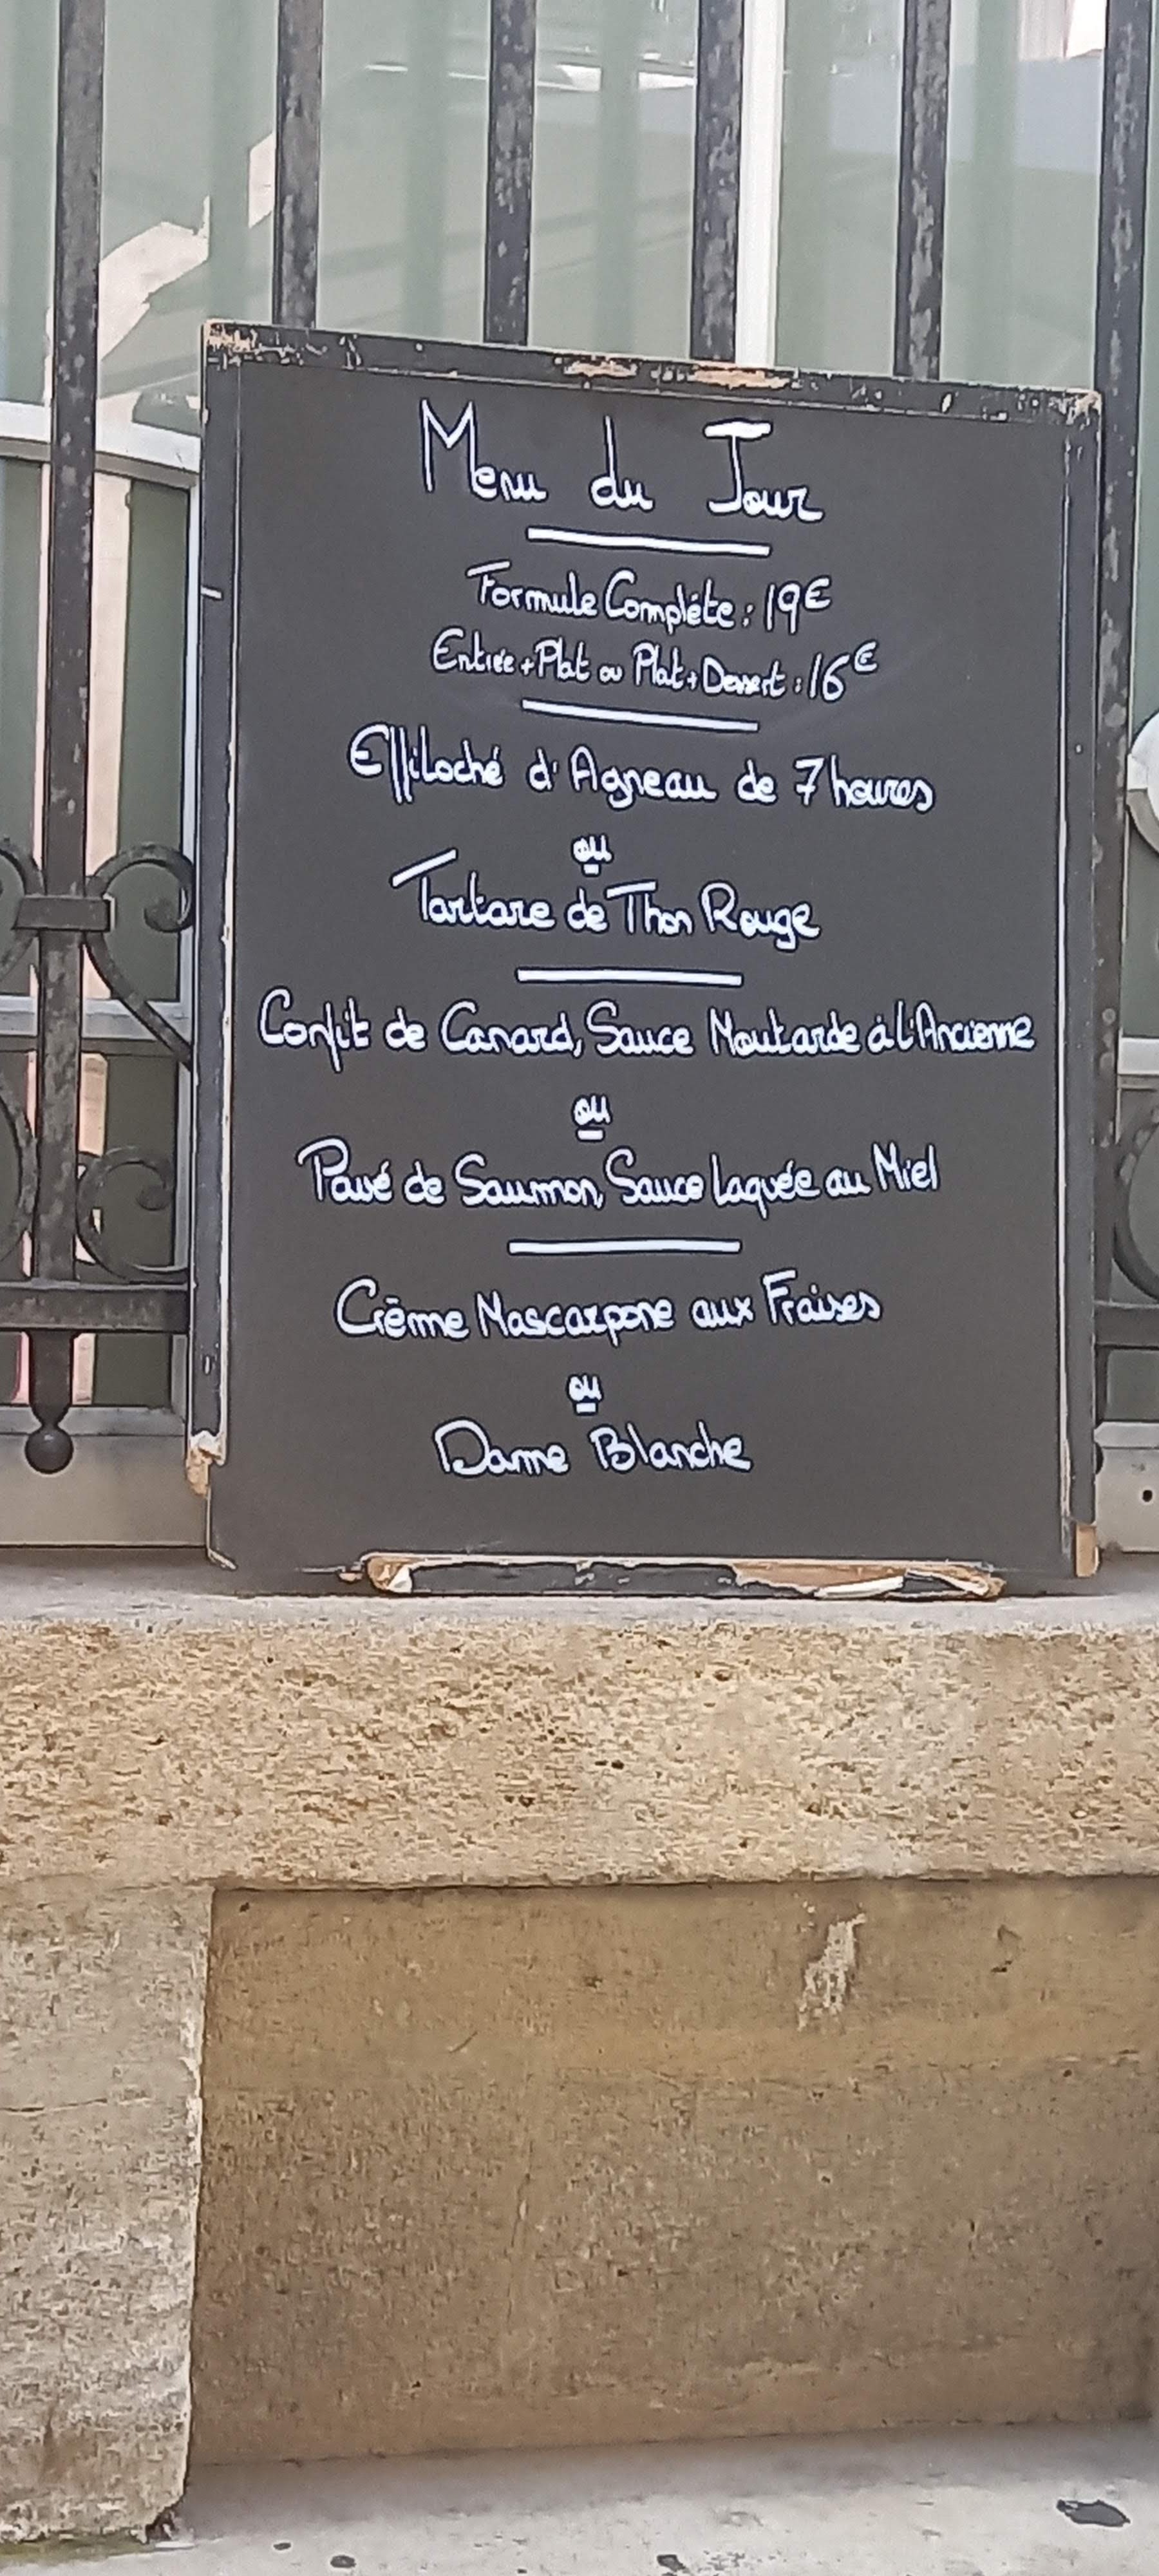 Menu du Jour
Formule Complète : 19€
Entrée + Plat ou Plat + Dessert : 16€
Effiloché d'Agneau de 7 heures
ou
Tartare de Thon Rouge
Confit de Canard, Sauce Moutarde à l'Ancienne
ou
Pavé de Saumon, Sauce Laquée au Miel
Crème Mascarpone aux Fraises
ou
Dame Blanche